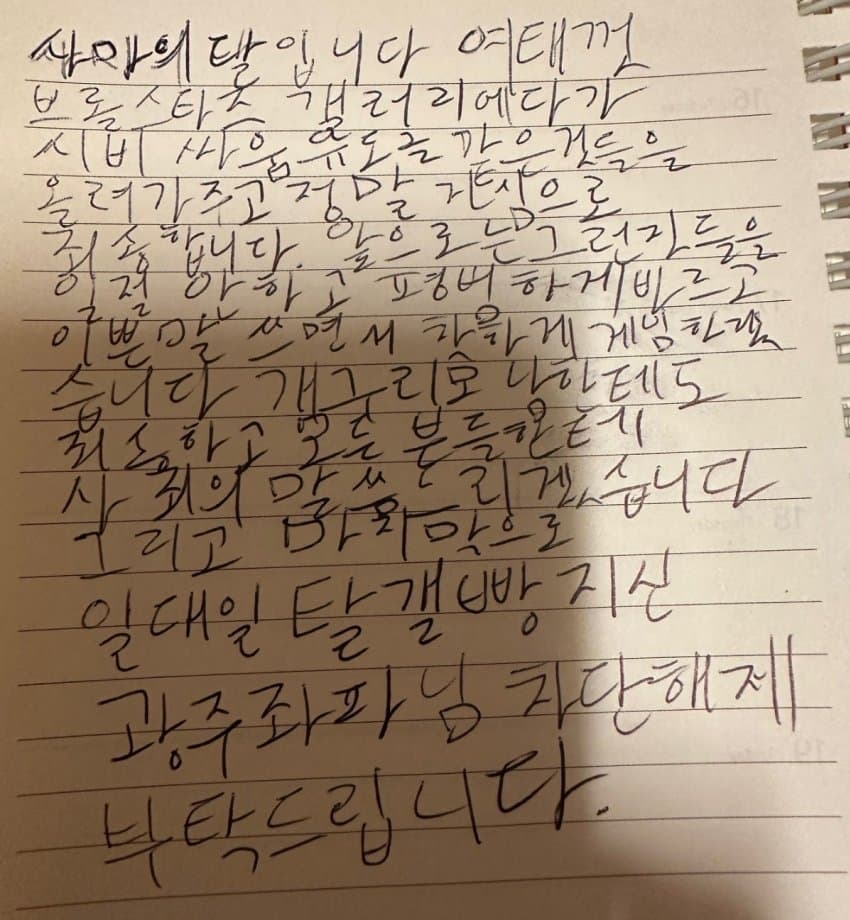 사마의탈입니다 여태껏
브롤스타즈 갤러리에다가
시비 싸움유도글 같은것들을
올려가주고 정말 진심으로
죄송합니다. 앞으로는 그런짓들을
일절 안하고 평범하게 바르고
이쁜말 쓰면서 착하게 게임하겠
습니다 개구리호 나한테도
죄송하고 모든 분들한테
사죄의 말씀드리겠습니다
그리고 마지막으로
일대일 탈갤빵 지신
광주좌파님 차단해제
부탁드립니다.